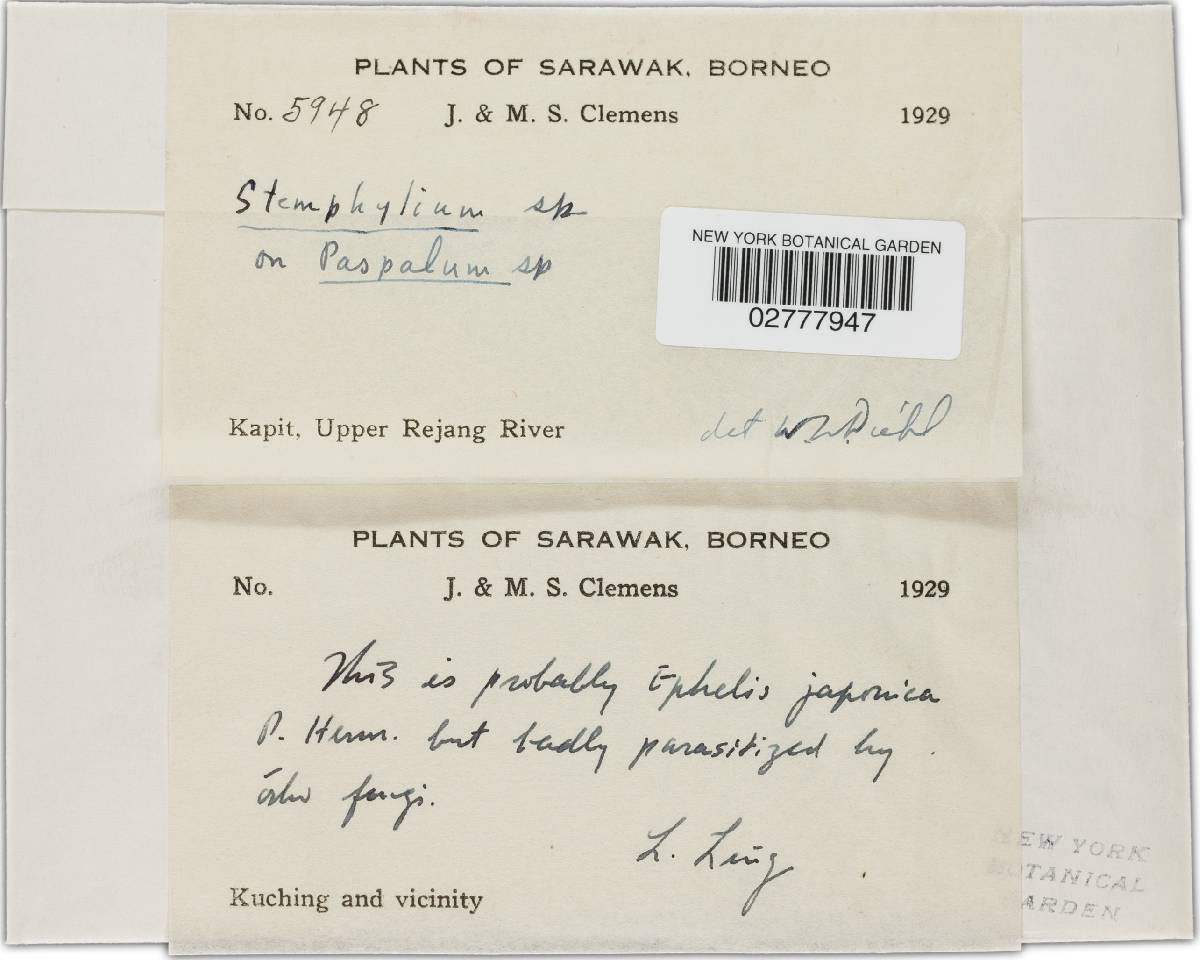 PLANTS OF SARAWAK, BORNEO
No. 5948 J. & M. S. Clemens 1929
Stemphylium sp
on Paspalum sp
NEW YORK BOTANICAL GARDEN
02777947
Kapit, Upper Rejang River
det W W Diehl
PLANTS OF SARAWAK, BORNEO
No. J. & M. S. Clemens 1929
This is probably Ephelis japonica
P. Henn. but badly parasitized by
other fungi.
L. Ling
Kuching and vicinity
NEW YORK
BOTANICAL
GARDEN